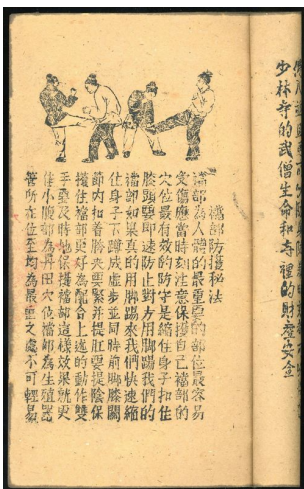 少林寺的武僧生命和寺裡的財產安全
襠部防護秘法
襠部為人體的最重要的部位最容易
受傷應當時刻注意保護自己襠部的
穴位最有效的防守是縮住身子扣住
膝頭要即速防止對方用脚踢我們的
襠部如果真的用脚踢來我們快速縮
住身子下蹲成虛步並同時前脚膝關
節內扣着胯夾要緊并提肛要提陰保
護住襠部更好為配合上述的動作雙
手要及時地保護襠部這樣效果就更
佳小腹部為丹田穴位襠部為生殖器
管所在位至均為最重之處不可輕易